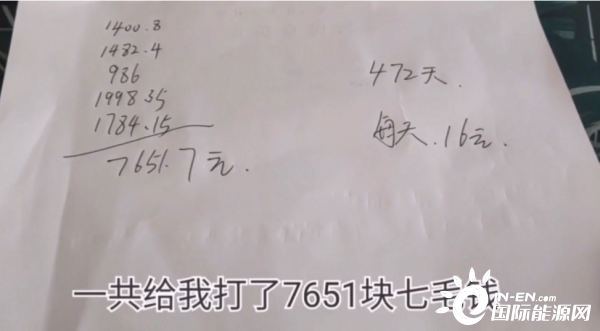 1400.8
1482.4
986
1998.35
1784.15
7651.7元.
472天.
每天.16元.
一共给我打了7651块七毛钱
IN-EN.com
国际能源网